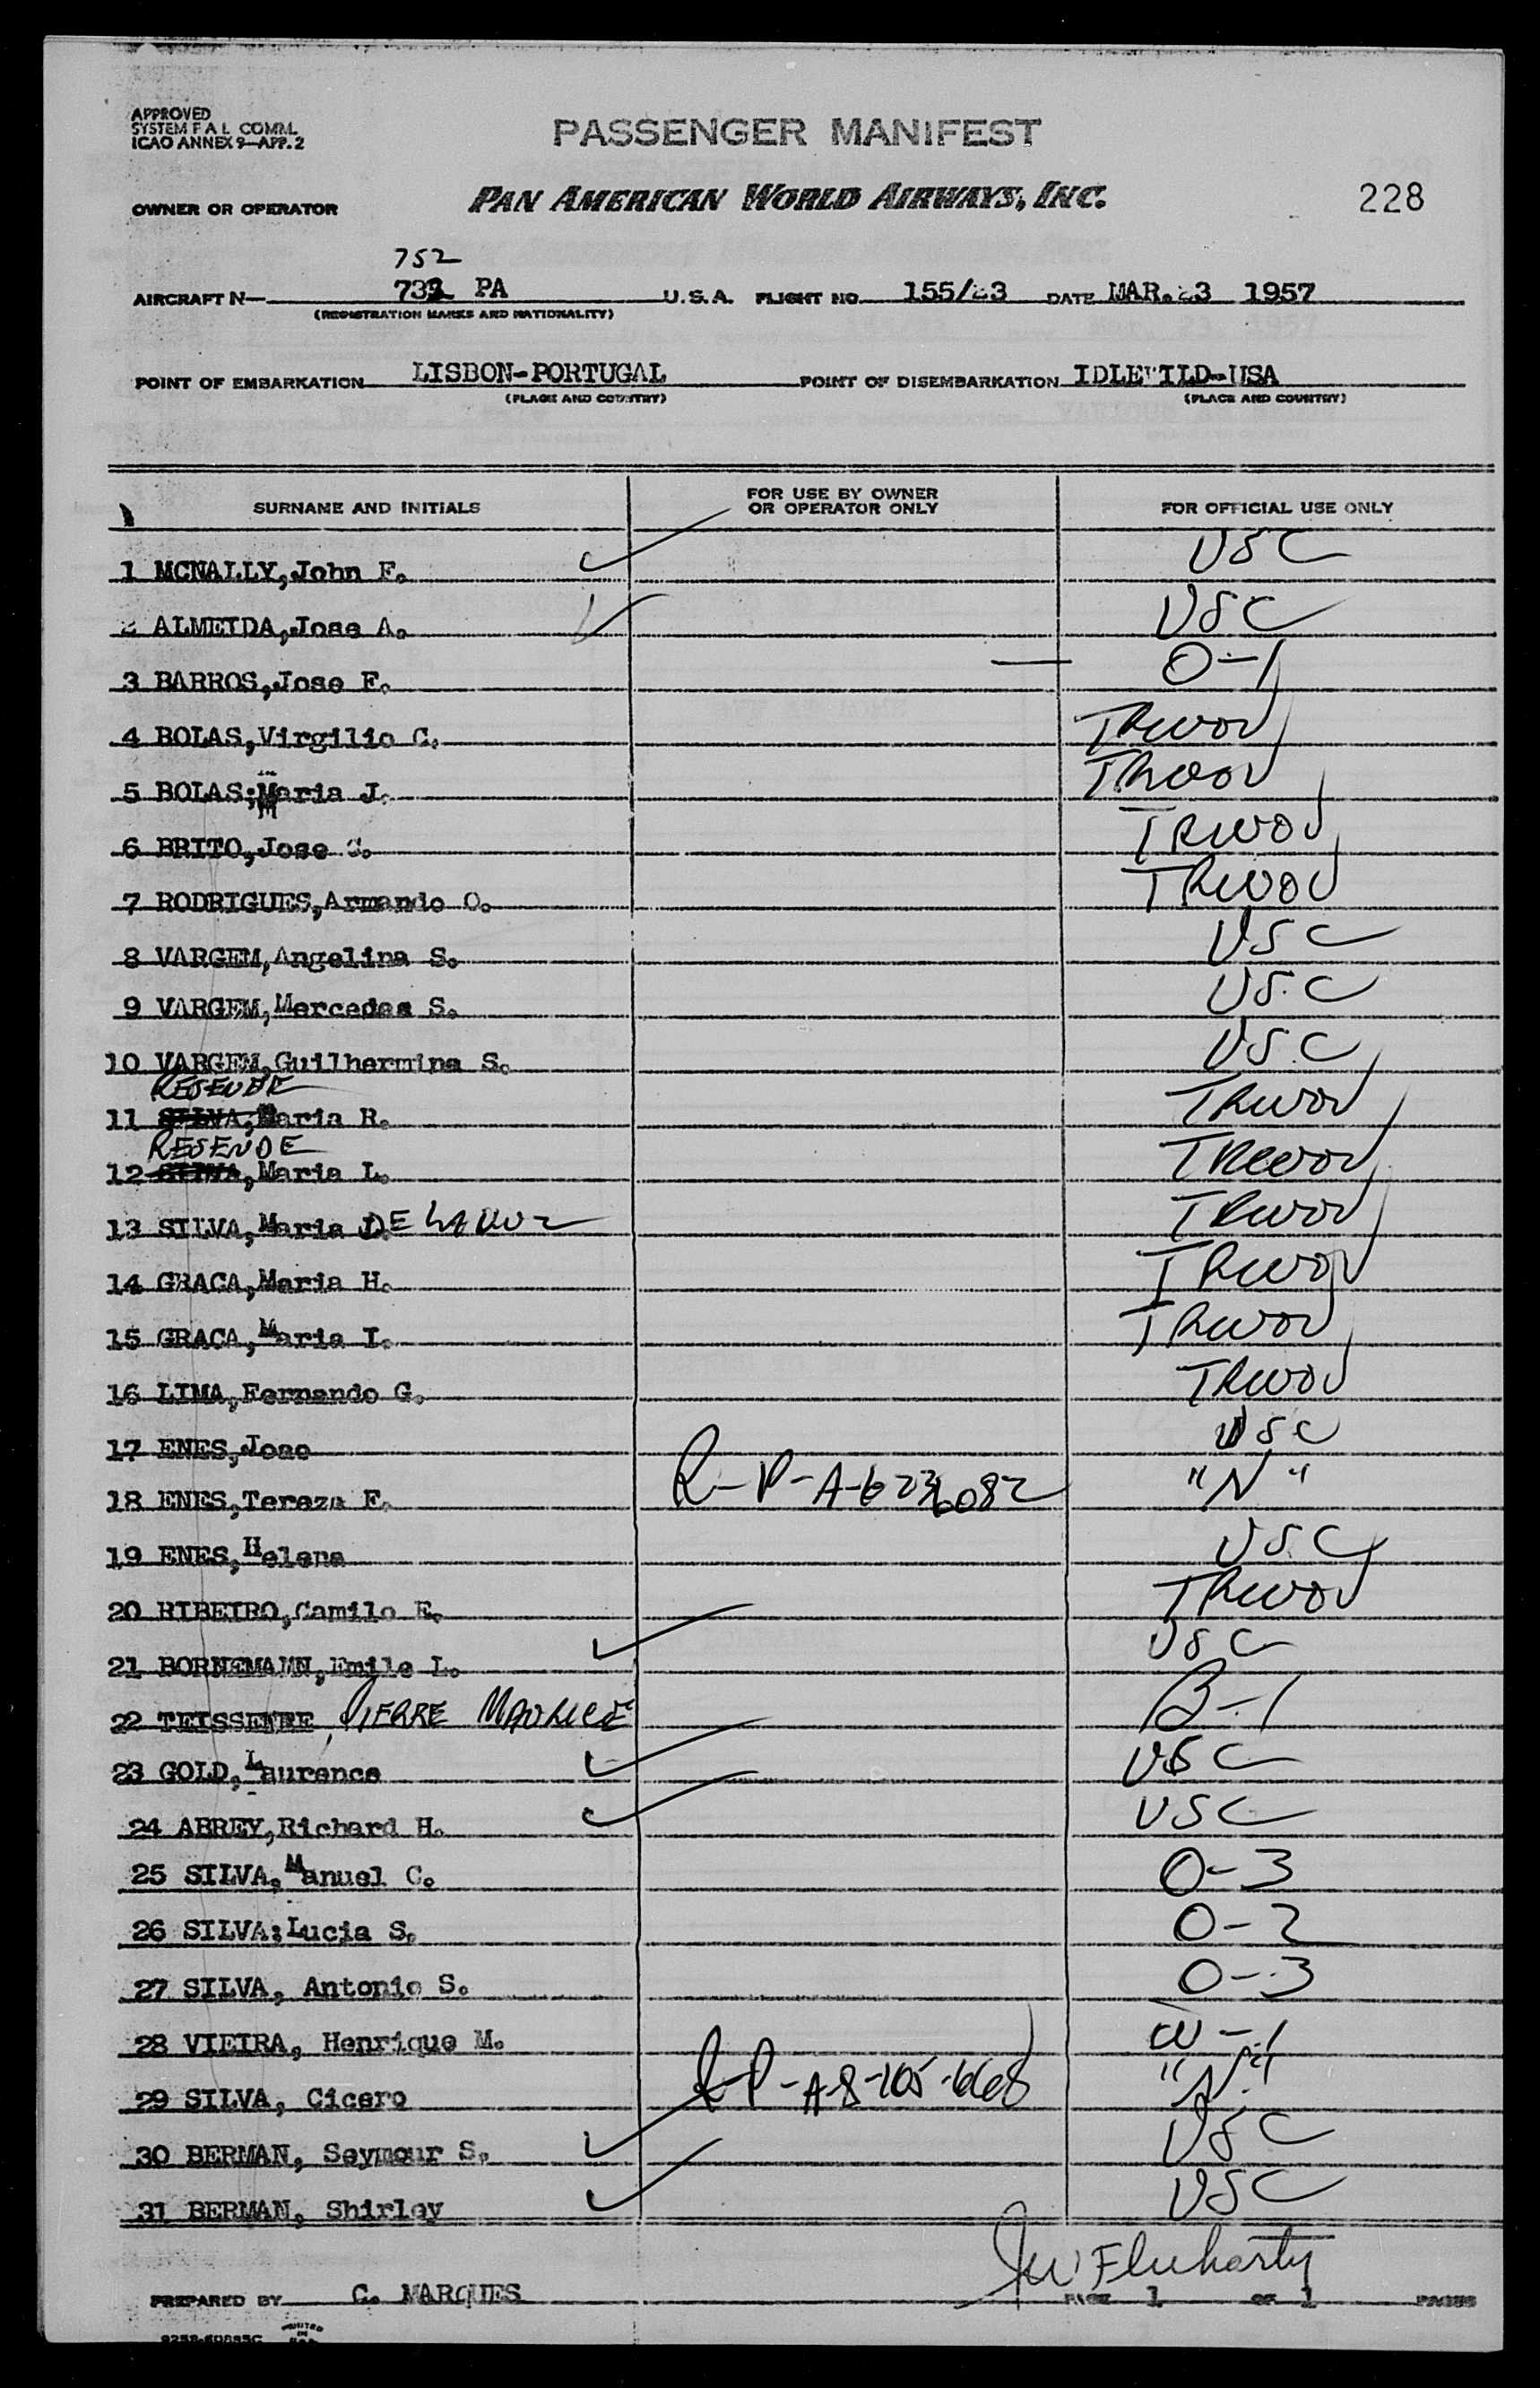 APPROVED
SYSTEM F A L COMM.
ICAO ANNEX 9—APP. 2
PASSENGER MANIFEST
OWNER OR OPERATOR PAN AMERICAN WORLD AIRWAYS, INC. 228
752
AIRCRAFT N— 732 PA U.S.A. FLIGHT NO. 155/23 DATE MAR. 23 1957
(REGISTRATION MARKS AND NATIONALITY)
POINT OF EMBARKATION LISBON-PORTUGAL POINT OF DISEMBARKATION IDLEWILD-USA
(PLACE AND COUNTRY) (PLACE AND COUNTRY)
SURNAME AND INITIALS FOR USE BY OWNER OR OPERATOR ONLY FOR OFFICIAL USE ONLY
1 MCNALLY,John F. USC
2 ALMEIDA,Jose A. USC
3 BARROS,Jose F. O-1
4 BOLAS,Virgilio C. TRWOV
5 BOLAS;Maria J. TRWOV
6 BRITO,Jose C. TRWOV
7 RODRIGUES,Armando O. TRWOV
8 VARGEM,Angelina S. USC
9 VARGEM,Mercedes S. USC
10 VARGEM,Guilhermina S. USC
RESENDE
11 SILVA,Maria R. TRWOV
RESENDE
12 SILVA,Maria L. TRWOV
13 SILVA,Maria DE TRWOV
14 GRACA,Maria H. TRWOV
15 GRACA,Maria I. TRWOV
16 LIMA,Fernando G. TRWOV
17 ENES,Jose USC
18 ENES,Tereza F. R-P-A-6236082 "N"
19 ENES,Helena USC
20 RIBEIRO,Camilo E. TRWOV
21 BORNEMANN,Emile L. USC
22 TEISSEYRE, PIERRE MAURICE B-1
23 GOLD,Laurence USC
24 ABREY,Richard H. USC
25 SILVA,Manuel C. O-3
26 SILVA;Lucia S. O-2
27 SILVA, Antonio S. O-3
28 VIEIRA, Henrique M. W-1
29 SILVA, Cicero R-P-A-8-105-668 "N"
30 BERMAN, Seymour S. USC
31 BERMAN, Shirley USC
JW Fluharty
PREPARED BY C. MARQUES PAGE 1 OF 1 PAGES
PRINTED IN